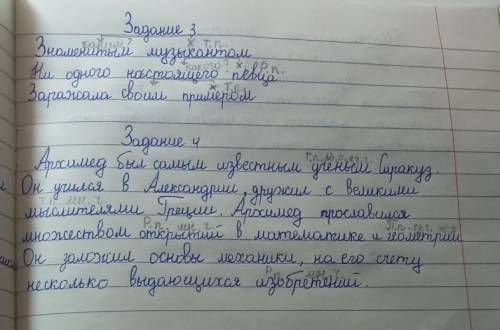 Задание 3.
каким? х т.п.
Знаменитым музыкантом
какого? х Р.п.
Ни одного настоящего певца
х Т.п.
Заражала своим примером
Задание 4
т.п. м.р. ед.ч.
Архимед был самым известным учёным Сиракуз.
Он учился в Александрии, дружил с великими
т.п. мн. ч.
мыслителями Греции. Архимед прославился
Р.п. мн. ч. П.п. ед.ч. ж.р.
множеством открытий в математике и геометрии
Он заложил основы механики, на его счету
Р.п. мн. ч.
несколько выдающихся изобретений.